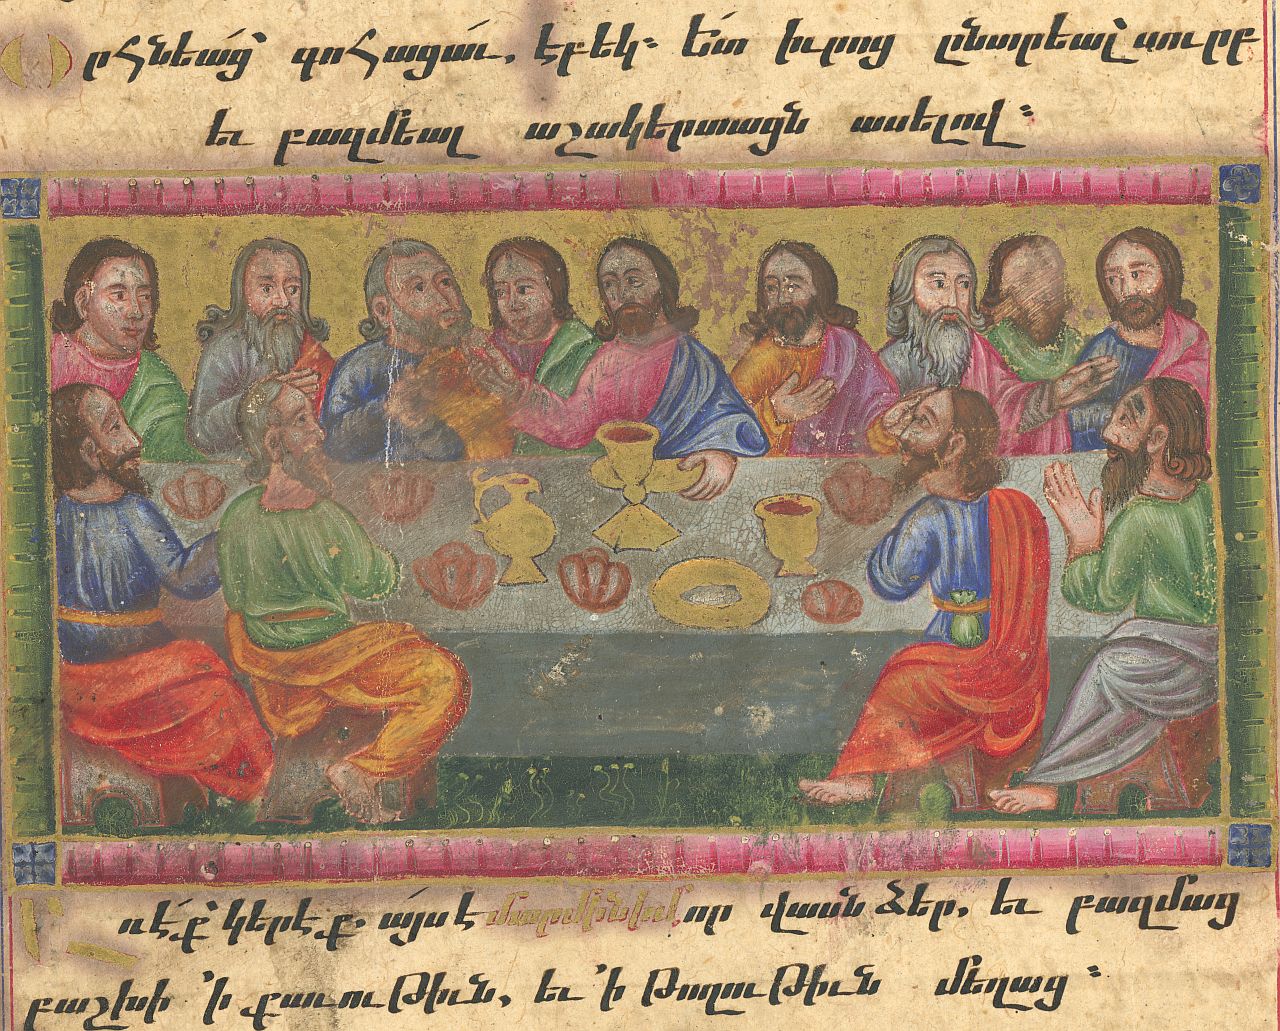 Օրհնեա՛ց՝ գոհացաւ, էբեկ։ Ետ իւրոց ընտրեալ՝ սուրբ
եւ բազմեալ աշակերտացն ասելով։
Առէ՛ք՝ կերէք, այս է մարմին իմ, որ վասն ձեր, եւ բազմաց
բաշխի ՚ի քաւութիւն, եւ ՚ի թողութիւն մեղաց։